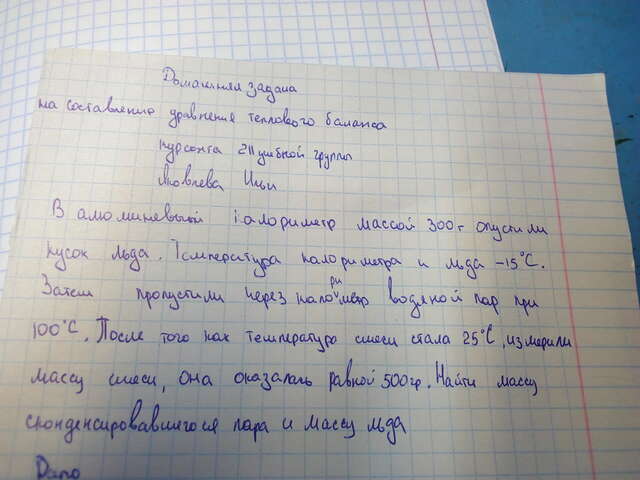 Домашняя задача
на составление уравнения теплового баланса
курсанта 211 учебной группы
Яковлева Ильи
В алюминевый калориметр массой 300г опустили
кусок льда. Температура калориметра и льда -15°C.
Затем пропустили через калориметр водяной пар при
100°C. После того как температура смеси стала 25°C, измерили
массу смеси, она оказалась равной 500гр. Найти массу
сконденсировавшегося пара и массу льда
Дано